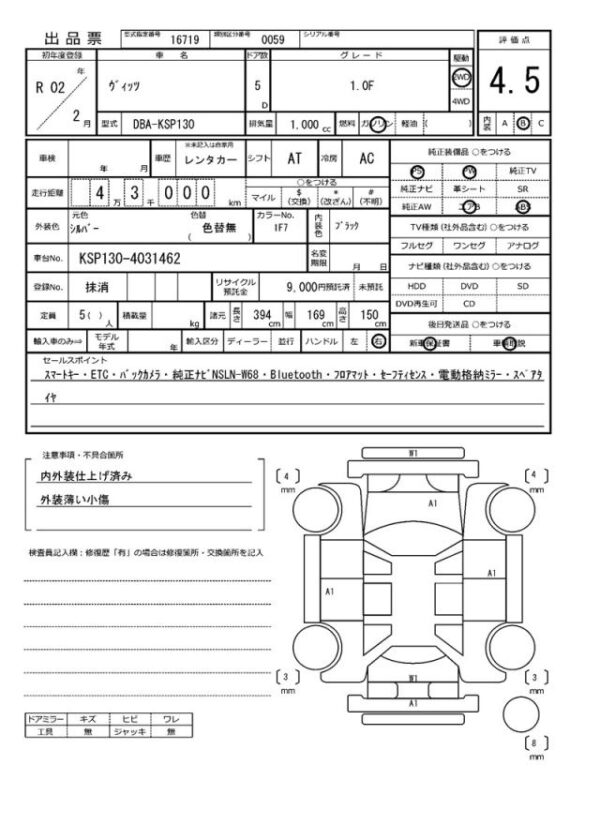 出品票 型式指定番号 16719 類別区分番号 0059 シリアル番号
評価点
初年度登録 車 名 ドア数 グレード 駆動
R 02 年 ヴィッツ 5 D 1.0F 2WD 4.5
4WD
2 月 型式 DBA-KSP130 排気量 1,000 cc 燃料 ガソリン 軽油 ( ) 内装 A B C
車検 年 月 車歴 ※未記入は自家用 レンタカー シフト AT 冷房 AC 純正装備品 ○をつける
PS PW 純正TV
走行距離 4 万 3 千 0 0 0 km ○をつける
マイル $ (交換) * (改ざん) # (不明) 純正ナビ 革シート SR
純正AW エアB ABS
外装色 元色 シルバー 色替 ( 色替無 ) カラーNo. 1F7 内装色 ブラック TV種類(社外品含む)○をつける
フルセグ ワンセグ アナログ
車台No. KSP130-4031462 名変期限 月 日 ナビ種類(社外品含む)○をつける
登録No. 抹消 リサイクル預託金 9,000円預託済 未預託 HDD DVD SD
DVD再生可 CD
定員 5( ) 人 積載量 kg 諸元 長さ 394 cm 幅 169 cm 高さ 150 cm 後日発送品 ○をつける
輸入車のみ⇒ モデル年式 年 輸入区分 ディーラー 並行 ハンドル 左 右 新車保証書 車輌取説
セールスポイント
スマートキー・ETC・バックカメラ・純正ナビNSLN-W68・Bluetooth・フロアマット・セーフティセンス・電動格納ミラー・スペアタ
イヤ
注意事項・不具合箇所
内外装仕上げ済み
外装薄い小傷
検査員記入欄：修復歴「有」の場合は修復箇所・交換箇所を記入
W1
( 4 ) mm ( 4 ) mm
A1
A1
A1
( 3 ) mm W1 ( 3 ) mm
A1
( 8 ) mm
ドアミラー キズ ヒビ ワレ
工具 無 ジャッキ 無